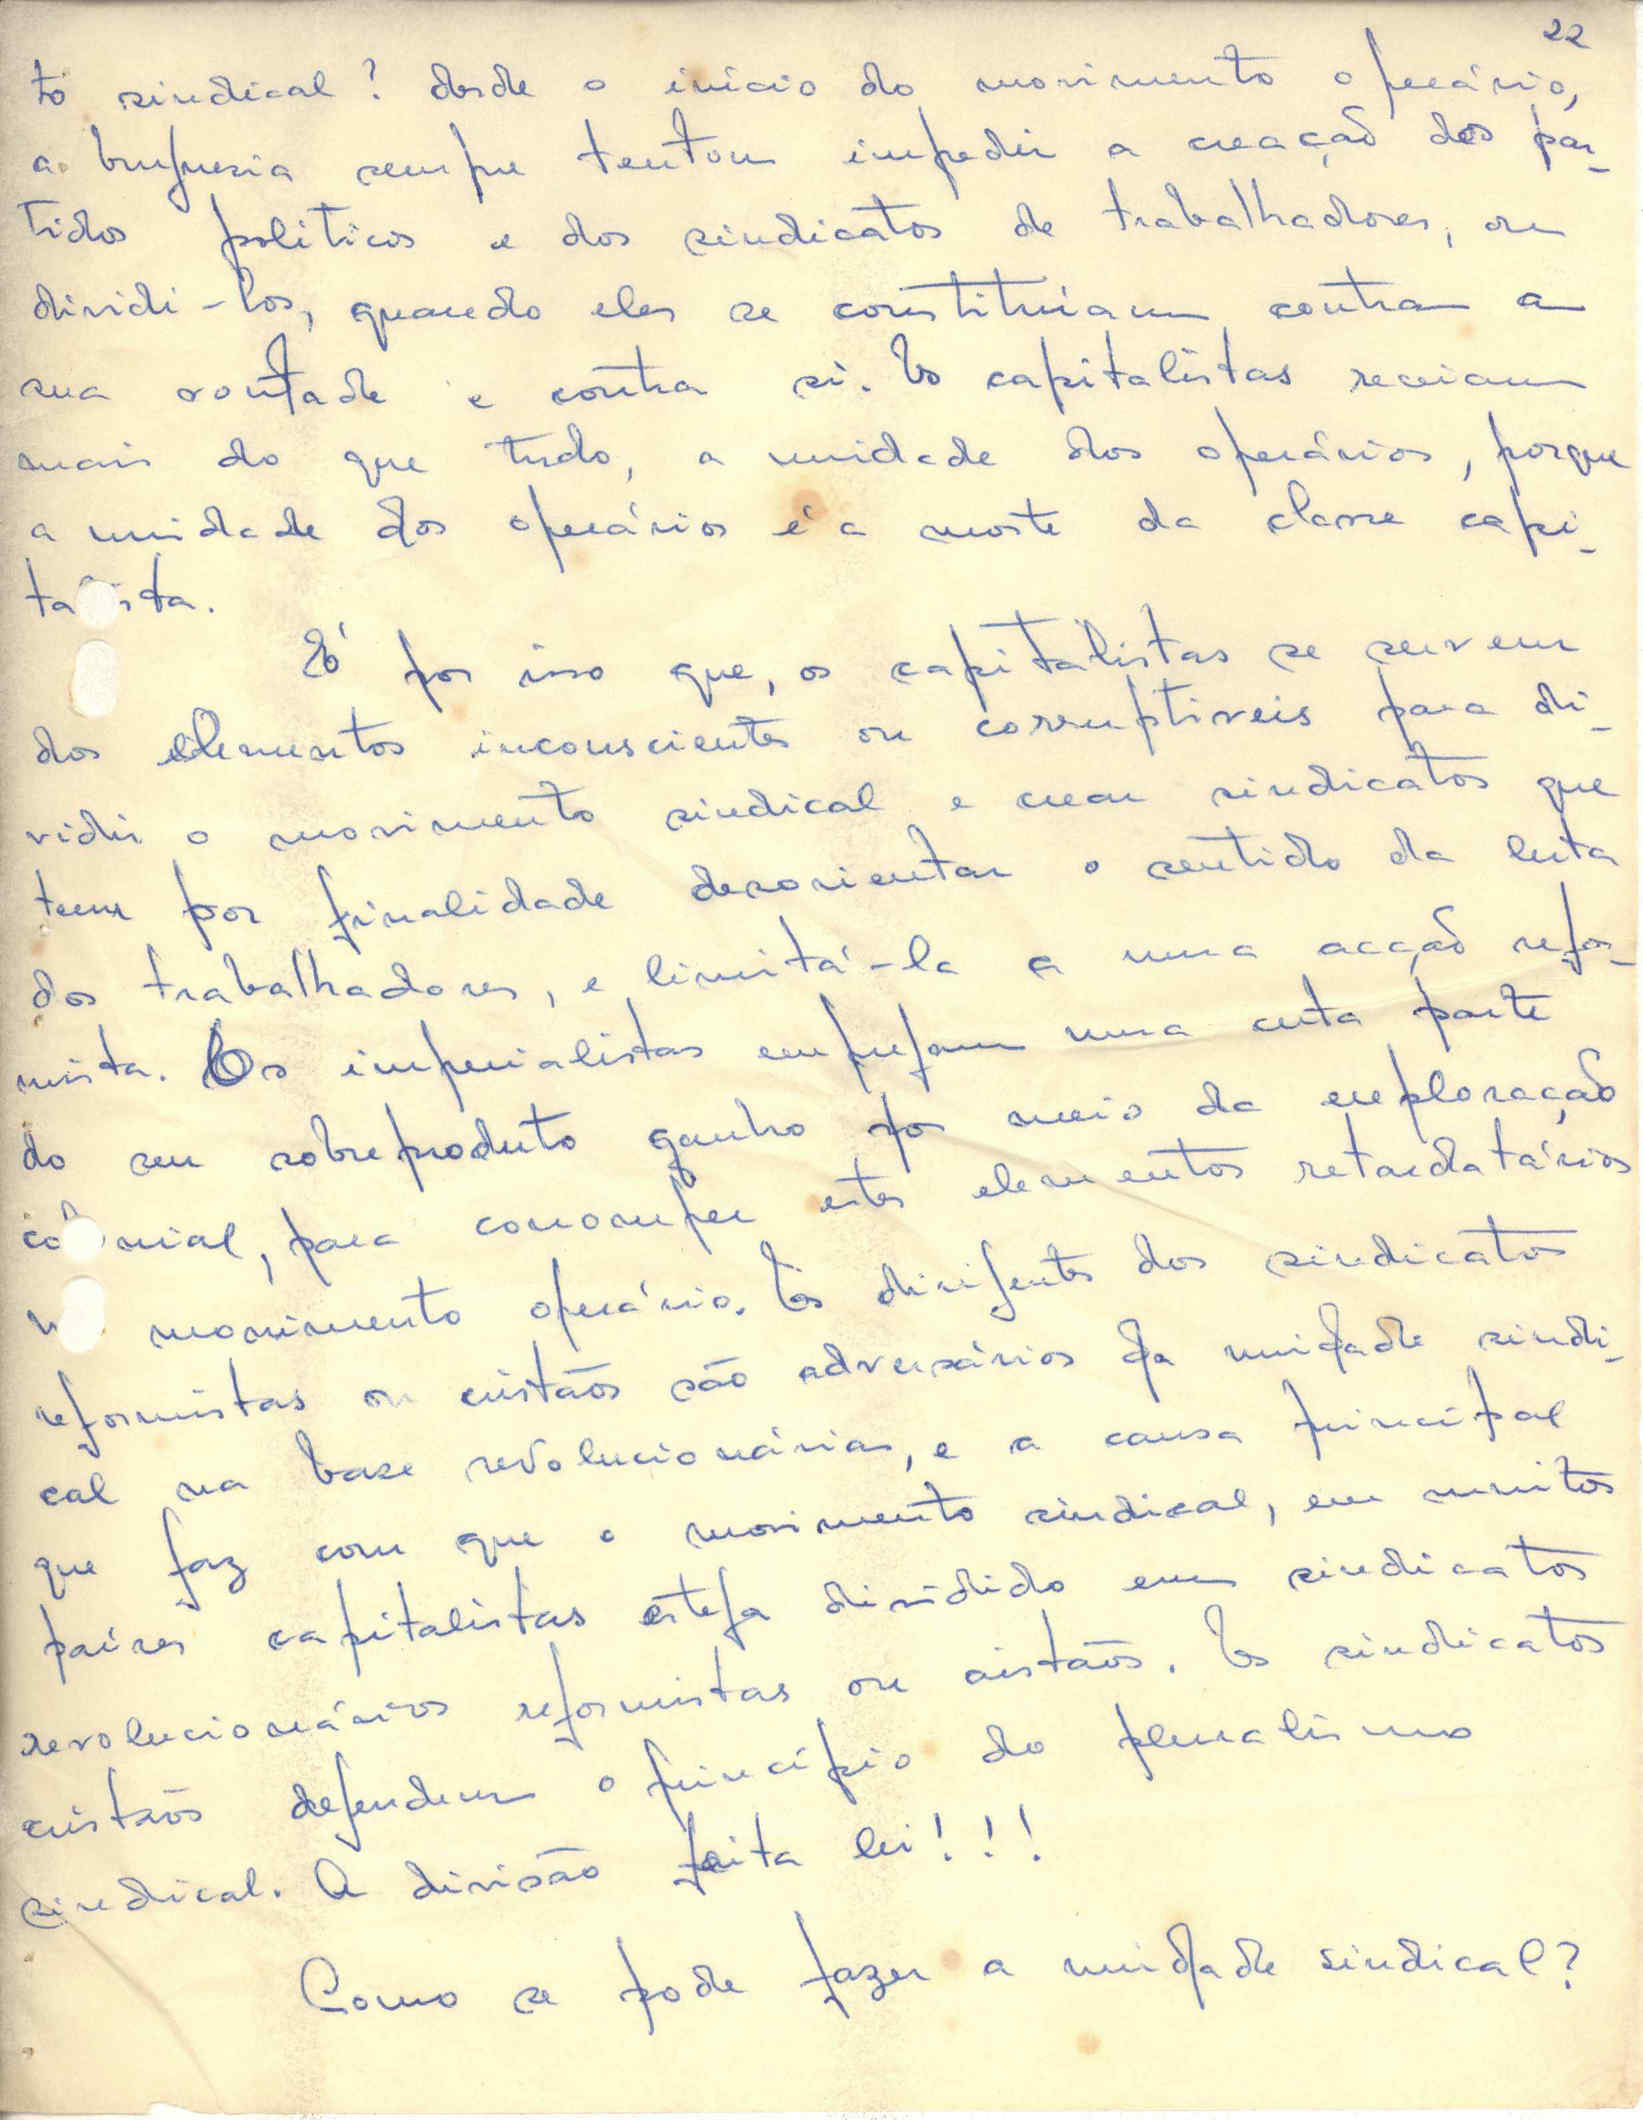 22
to sindical? desde o inicio do movimento operário,
a burguesia sempre tentou impedir a creação dos par-
tidos politicos e dos sindicatos de trabalhadores, ou
dividi-los, quando eles se constituiam contra a
sua vontade e contra si. Os capitalistas receiam
mais do que tudo, a unidade dos operários, porque
a unidade dos operários é a morte da classe capi-
talista.
É por isso que, os capitalistas se servem
dos elementos inconscientes ou corruptiveis para di-
vidir o movimento sindical e crear sindicatos que
tem por finalidade desorientar o sentido da luta
dos trabalhadores, e limitá-la a uma acção refor-
mista. Os imperialistas empregam uma certa parte
do seu sobreproduto ganho por meio da exploração
colonial, para corromper estes elementos retardatários
no movimento operário. Os dirigentes dos sindicatos
reformistas ou cristãos são adversários da unidade sindi-
cal na base revolucionárias, e a causa principal
que faz com que o movimento sindical, em muitos
paises capitalistas esteja dividido em sindicatos
revolucionários reformistas ou cristãos. Os sindicatos
cristãos defendem o princípio do pluralismo
sindical. A divisão feita lei!!!
Como se pode fazer a unidade sindical?